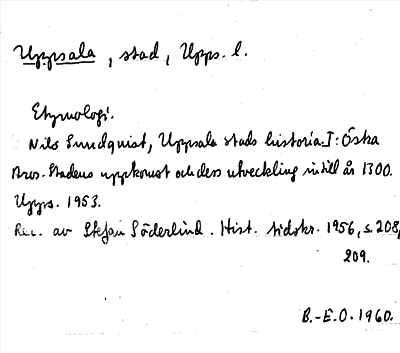 Uppsala, stad, Upps. l.
Etymologi.
Nils Sundquist, Uppsala stads historia I: Östra
Aros. Stadens uppkomst och dess utveckling intill år 1300.
Upps. 1953.
Rec. av Stefan Söderlind. Hist. tidskr. 1956, s. 208,
209.
B.-E.O. 1960.